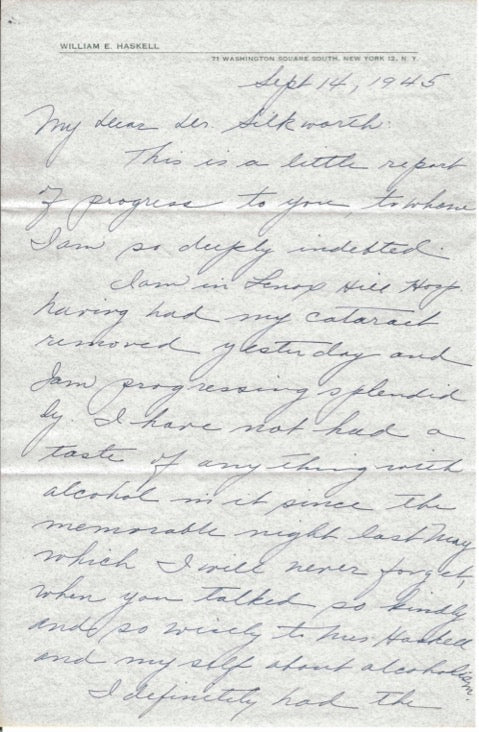 WILLIAM E. HASKELL
71 WASHINGTON SQUARE SOUTH, NEW YORK 12, N. Y.
Sept 14, 1945
My dear Dr. Silkworth:
This is a little report
of progress to you, to whom
I am so deeply indebted.
I am in Lenox Hill Hosp
having had my cataract
removed yesterday and
I am progressing splendid
ly. I have not had a
taste of any thing with
alcohol in it since the
memorable night last May
which I will never forget,
when you talked so kindly
and so wisely to Mrs Haskell
and my self about alcoholism.
I definitely had the